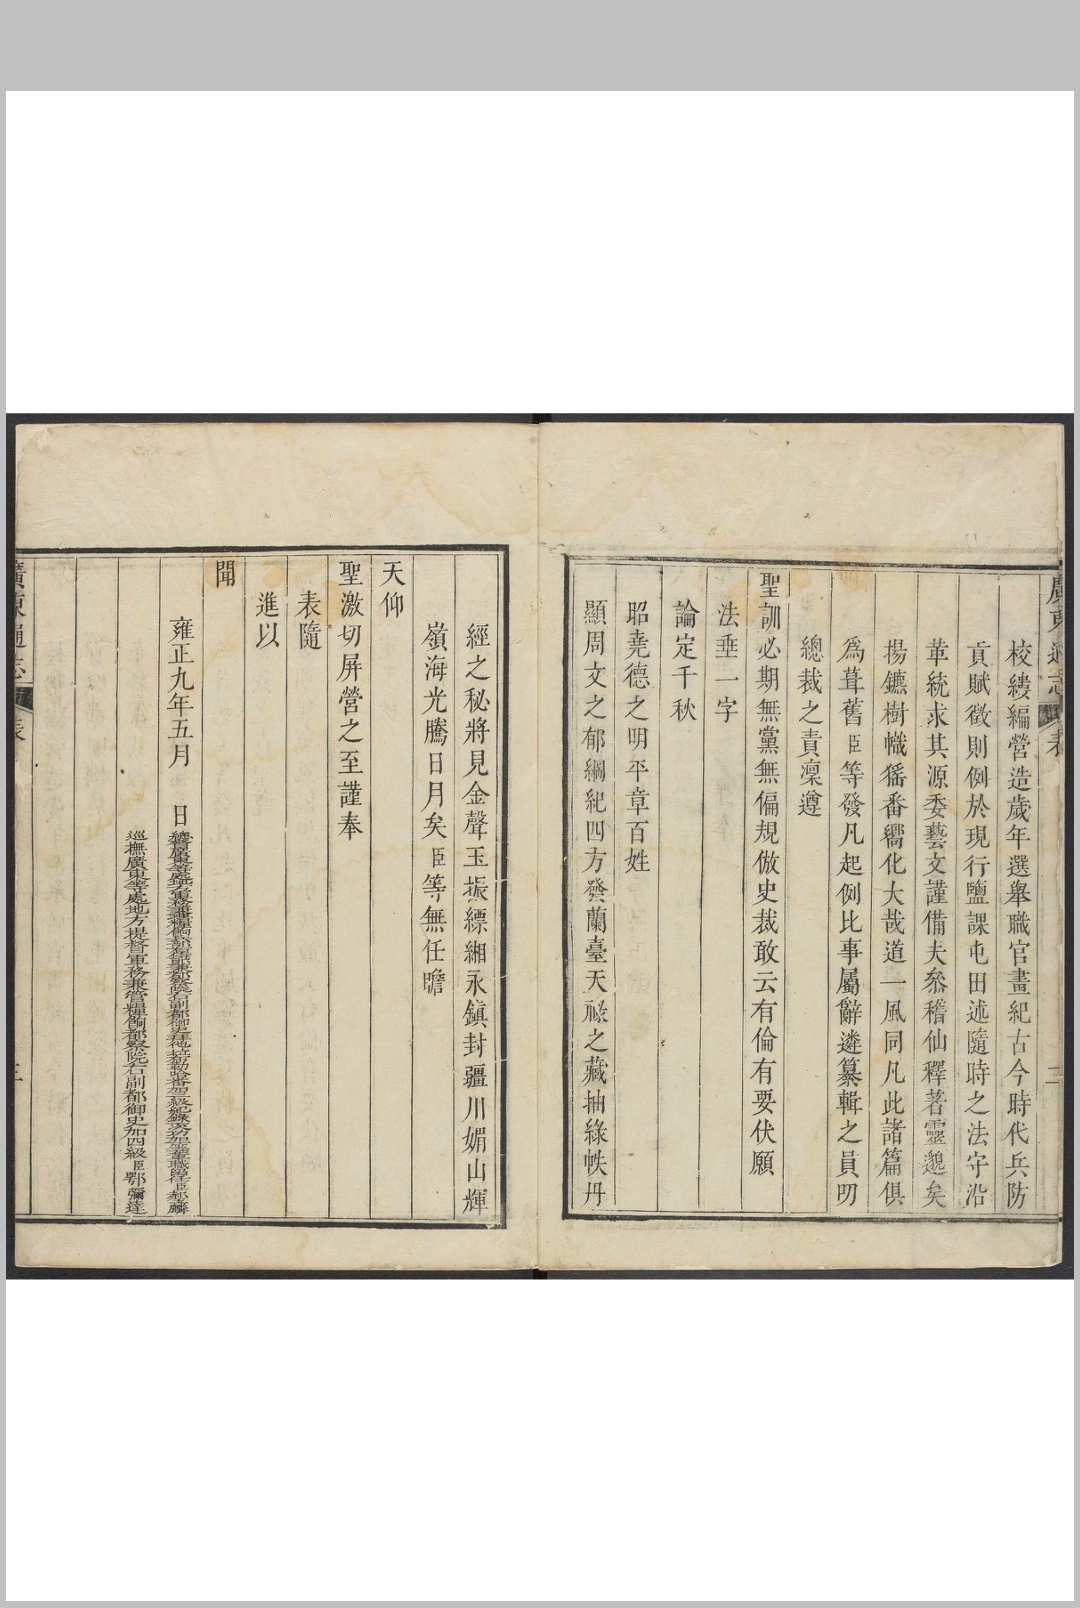 廣東通志 表 二
校縷編營造歲年選舉職官畫紀古今時代兵防
貢賦徵則例於現行鹽課屯田述隨時之法守沿
革統求其源委藝文謹備夫叅稽仙釋著靈邈矣
揚鑣樹幟猺番嚮化大哉道一風同凡此諸篇俱
爲葺舊臣等發凡起例比事屬辭遴纂輯之員叨
總裁之責凜遵
聖訓必期無黨無偏規倣史裁敢云有倫有要伏願
法垂一字
論定千秋
昭堯德之明平章百姓
顯周文之郁綱紀四方發蘭臺天祿之藏抽綠帙丹
經之秘將見金聲玉振縹緗永鎮封疆川媚山輝
嶺海光騰日月矣臣等無任瞻
天仰
聖激切屏營之至謹奉
表隨
進以
聞
雍正九年五月 日
巡撫廣東等處地方提督軍務兼管糧餉都察院右副都御史加四級臣鄂彌達
廣東通志 表 三